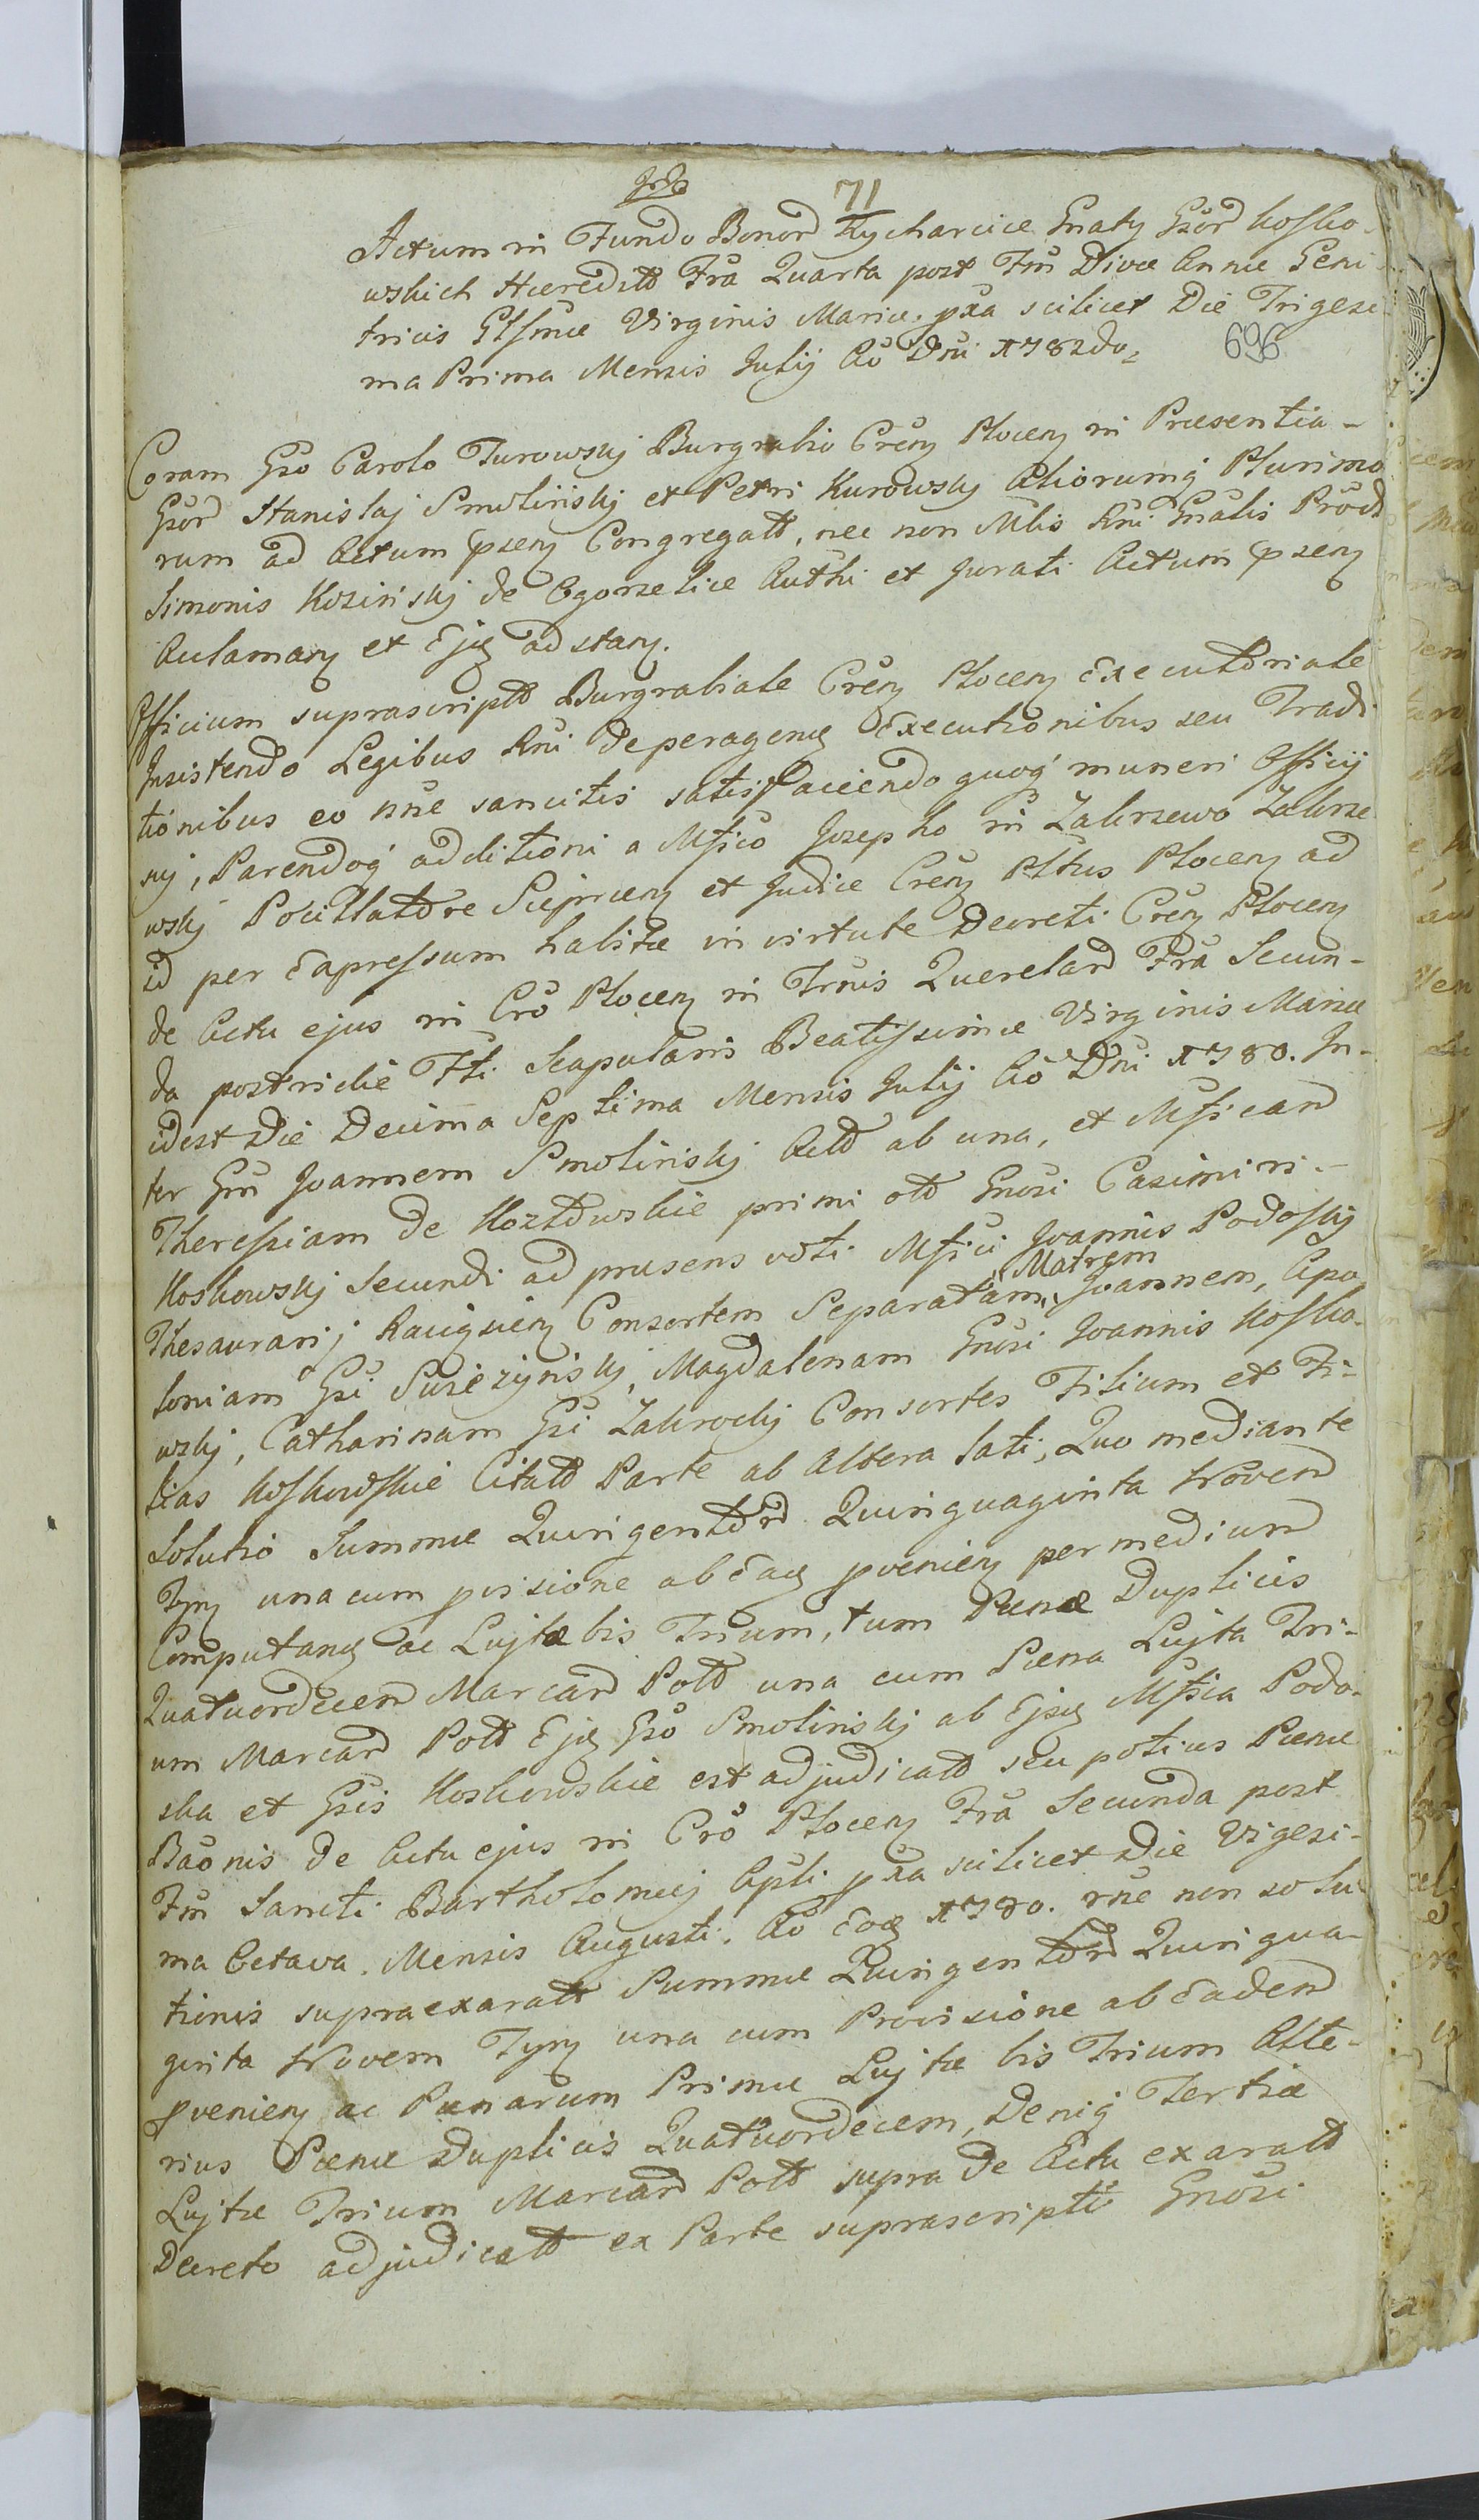 71
Actum in Fundo Bonor̄ Rycharcice Gnaty Gsōr Kossko-
wskich Hæredit̄t Frā Quarta post Fm̄ Divæ Annæ Geni-
tricis Glssmæ Virginis Mariæ. pxa scilicet Die Trigesi-
ma Prima Mensis Julij Aō Dn̄i 1782do.
696
Coram Gso Carolo Turowskj Burgrabio Cren̄ Płocen̄ in Præsentia-
Gsōr Stanislaj Smolinskj et Petri Kurowskj Aliorumq̃ Plurimo
rum ad Actum pn̄sen̄ Congregatt̄, nec non Mlis Rn̄i Gn̄alis Prōd
Simonis Kosinskj de Ogorzelice Authi et Jurati Actum pn̄sen̄
Aclaman̄ et Ejq̃ adstan̄.
Officium suprascriptt̄ Burgrabiale Cren̄ Płocen̄ Executoriale
Insistendo Legibus Rn̄i de peragen̄ Executionibus seu Tradi
tionibus eo nn̄e sancitis satisfaciendo quoq̃ muneri Officij
sui, Parendoq̃ additioni a Mfico Josepho in Zakrzewo Zakrze
wskj Pocillatore Sieprcen̄ et Judice Cren̄ Pltus Płocen̄ ad
id per Expressum habitæ in virtute Decreti Cren̄ Płocen̄
de Actu ejus in Crō Płocen̄ in Trn̄is Querelar̄ Frā Secun-
da postridie Fti Scapularis Beatissimæ Virginis Mariæ
idest Die Decima Septima Mensis Julij Aō Dn̄i 1780. In-
ter Gm̄ Joannem Smolinskj Actt̄ ab una, et Mficam̄
Theressiam de Koztowskie primi ott̄ Gnosi Casimiri-
Koskowskj Secundi ad præsens voti Mfici Joannis Podoskj
Thesaurarij Raciąsien̄ Consortem Separatam, Matrem Joannem, Apo
loniam Gsi Suszczynskj, Magdalenam Gnosi Joannis Kossko-
wskj, Catharinam Gsi Zakrockj Consortes Filium et Fi-
lias Koskowskie Citatt̄ Parte ab Altera lati, Quo mediante
Solutio Summæ Quingentōr Quinquaginta Novem̄
Tyn̄ unacum pvisione ab Eaq̃ pvenien̄ per medium̄
Computan̄ ac Lujtæ bis Trium, tum Pænæ Duplicis
Quatuordecem̄ Marcar̄ Poltt̄ una cum Pæna Lujta Tri-
um Marcar̄ Poltt̄ Ejq̃ Gsō Smolinskj ab Ejsq̃ Mfica Podo-
ska et Gsis Koskowskie est adjudicatt̄ seu potius Pænæ
Baōnis de Actu ejus in Crō Płocen̄ Frā Secunda post
Fm̄ Sancti Bartholomæj Apli pxa scilicet Die Vigesi-
ma Octava. Mensis Augusti. Aō Eoq̃ 1780. rn̄e non solu-
tionis supraexaratt̄ Summæ Quingentōr Quinqua-
ginta Novem Tyn̄ una cum Provisione ab Eadem̄
pvenien̄ ac Pænarum Primæ Lujtæ bis Trium Alte-
rius Pænæ Duplicis Quatuordecem, Deniq̃ Tertiæ
Lujtæ Trium Marcar̄ Poltt̄ supra de Actu exaratt̄
Decreto adjudicatt̄ ex Parte suprascriptī Gnosi